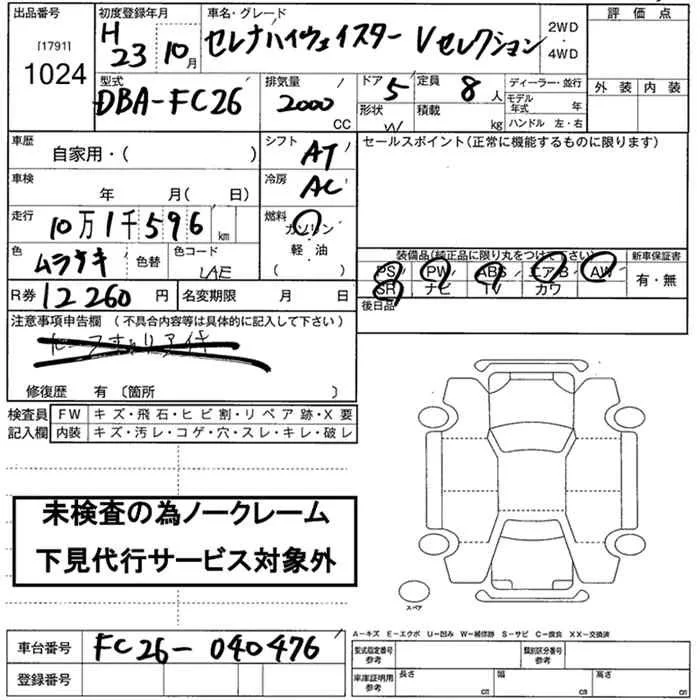 出品番号 初度登録年月 車名・グレード 評価点
[1791] H セレナハイウェイスター Vセレクション 2WD
1024 23 10月 ・ 4WD
型式 排気量 ドア 5 定員 8人 ディーラー・並行 外装 内装
DBA-FC26 2000 CC 形状 W 積載 kg モデル年式 年
ハンドル 左・右
車歴 シフト セールスポイント(正常に機能するものに限ります)
自家用・( ) AT
車検 冷房
年 月( 日) AC
走行 燃料
10万1千596km ガソリン
・
色 色替 色コード 軽・油 装備品(純正品に限り丸をつけて下さい) 新車保証書
ムラサキ ( ) PS PW ABS エアB AW 有・無
SR ナビ TV カワ
R券 12260円 名変期限 月 日 後日品
注意事項申告欄 (不具合内容等は具体的に記入して下さい)
修復歴 有 〔箇所 〕
検査員 FW キズ・飛石・ヒビ割・リペア跡・X要
記入欄 内装 キズ・汚レ・コゲ・穴・スレ・キレ・破レ
未検査の為ノークレーム
下見代行サービス対象外
スペア
A-キズ E-エクボ U-凹み W-補修跡 S-サビ C-腐食 XX-交換済
車台番号 FC26-040476 型式指定番号 参考 類別区分番号 参考
登録番号 車庫証明用 参考 長さ cm 幅 cm 高さ cm